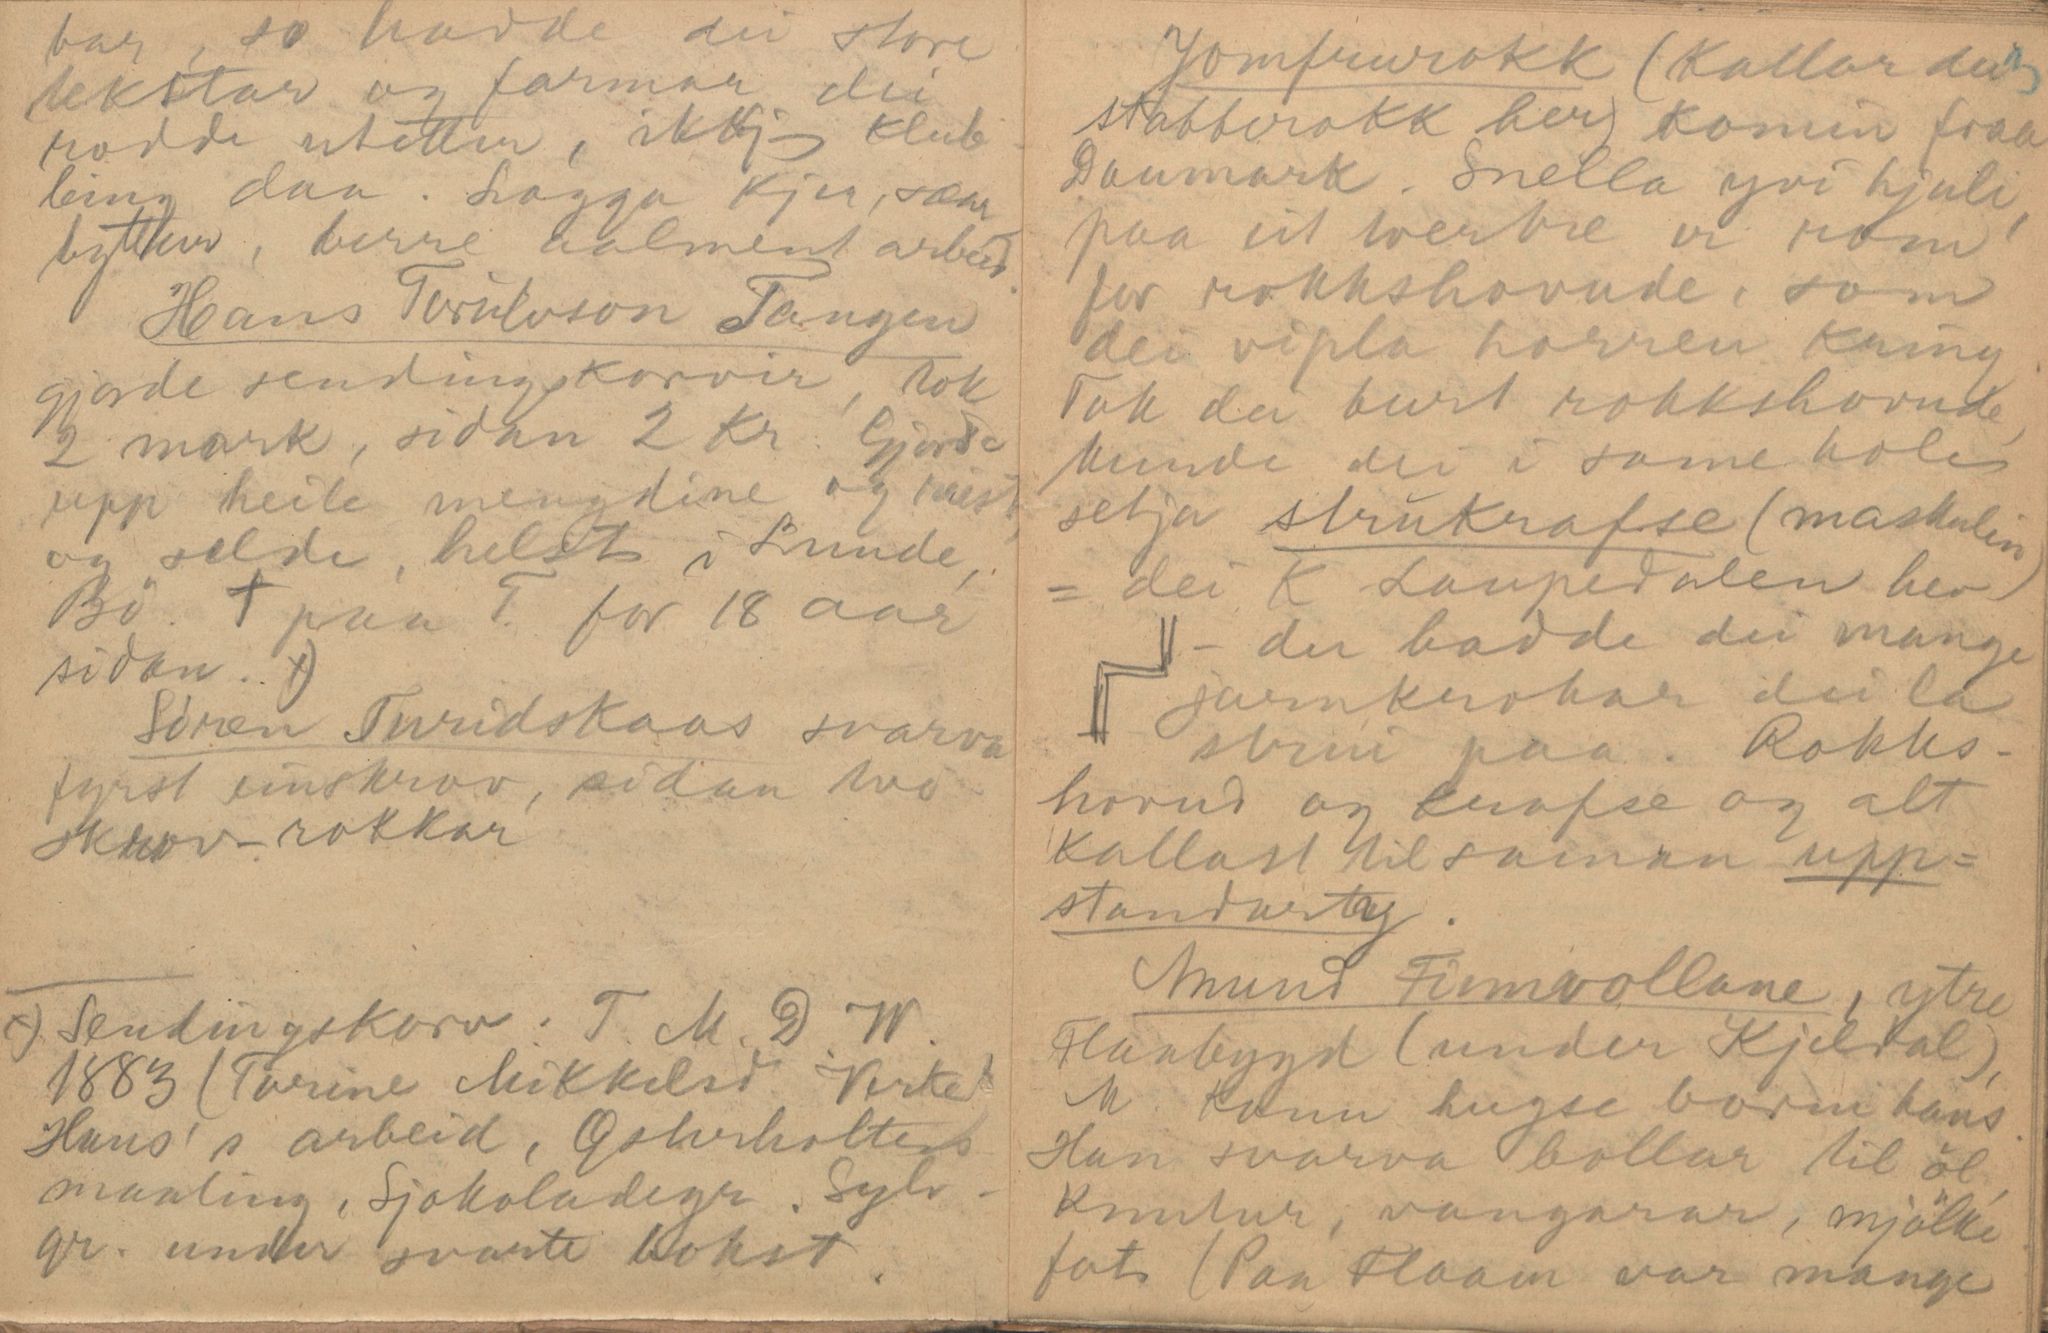 bar, so hadde dei store
tekstar og farmar dei
rodde utetter, ikkje klub-
bing daa. Lagga kjer, saar
byttur, berre aalment arbeid.
Hans Torulvson Tangen
gjorde sendingskorvir, tok
2 mark, sidan 2 kr. Gjorde
upp heile mengdine og reist
og selde, helst i Lunde,
Bö. † paa T. for 18 aar
sidan. x)
Sören Turidskaas svarva
fyrst einskrov, sidan två
skrov-rokkar
x) Sendingskorv. T. M. D. W.
1883 (Torine Mikkelsd
Hans's arbeid,
maaling, Sjokoladegr. Sylv-
gr. under svarte bokst.
Jomfrurokk (kallar dei
stabberokk her) komin fraa
Danmark. Snella yvi hjuli,
paa eit tverrtre er rom
for rokkshovude, som
dei vipla horren kring
Tok dei burt rokkshovude,
kunde dei i same hole
setja strukrafse (maskulin)
= dei K Laupedalen hev
- der hadde dei mange
jarnkrokar dei la
strui paa. Rokks-
hovud og krafse og alt
kallast til saman upp=
standarty.
Amund Finnvollane, ytre
Flaabygd (under Kjeldal),
M. kann hugse borni hans.
Han svarva bollar til öl,
knutur, vangarar, mjölke
fat (Paa Flaam var mange